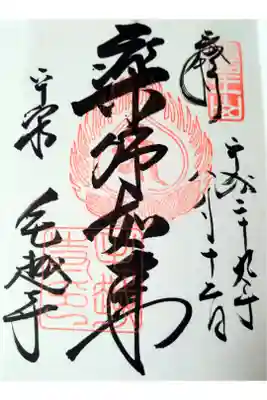 奉拝
平成二十九年
八月十二日
薬師如来
平泉
毛越寺